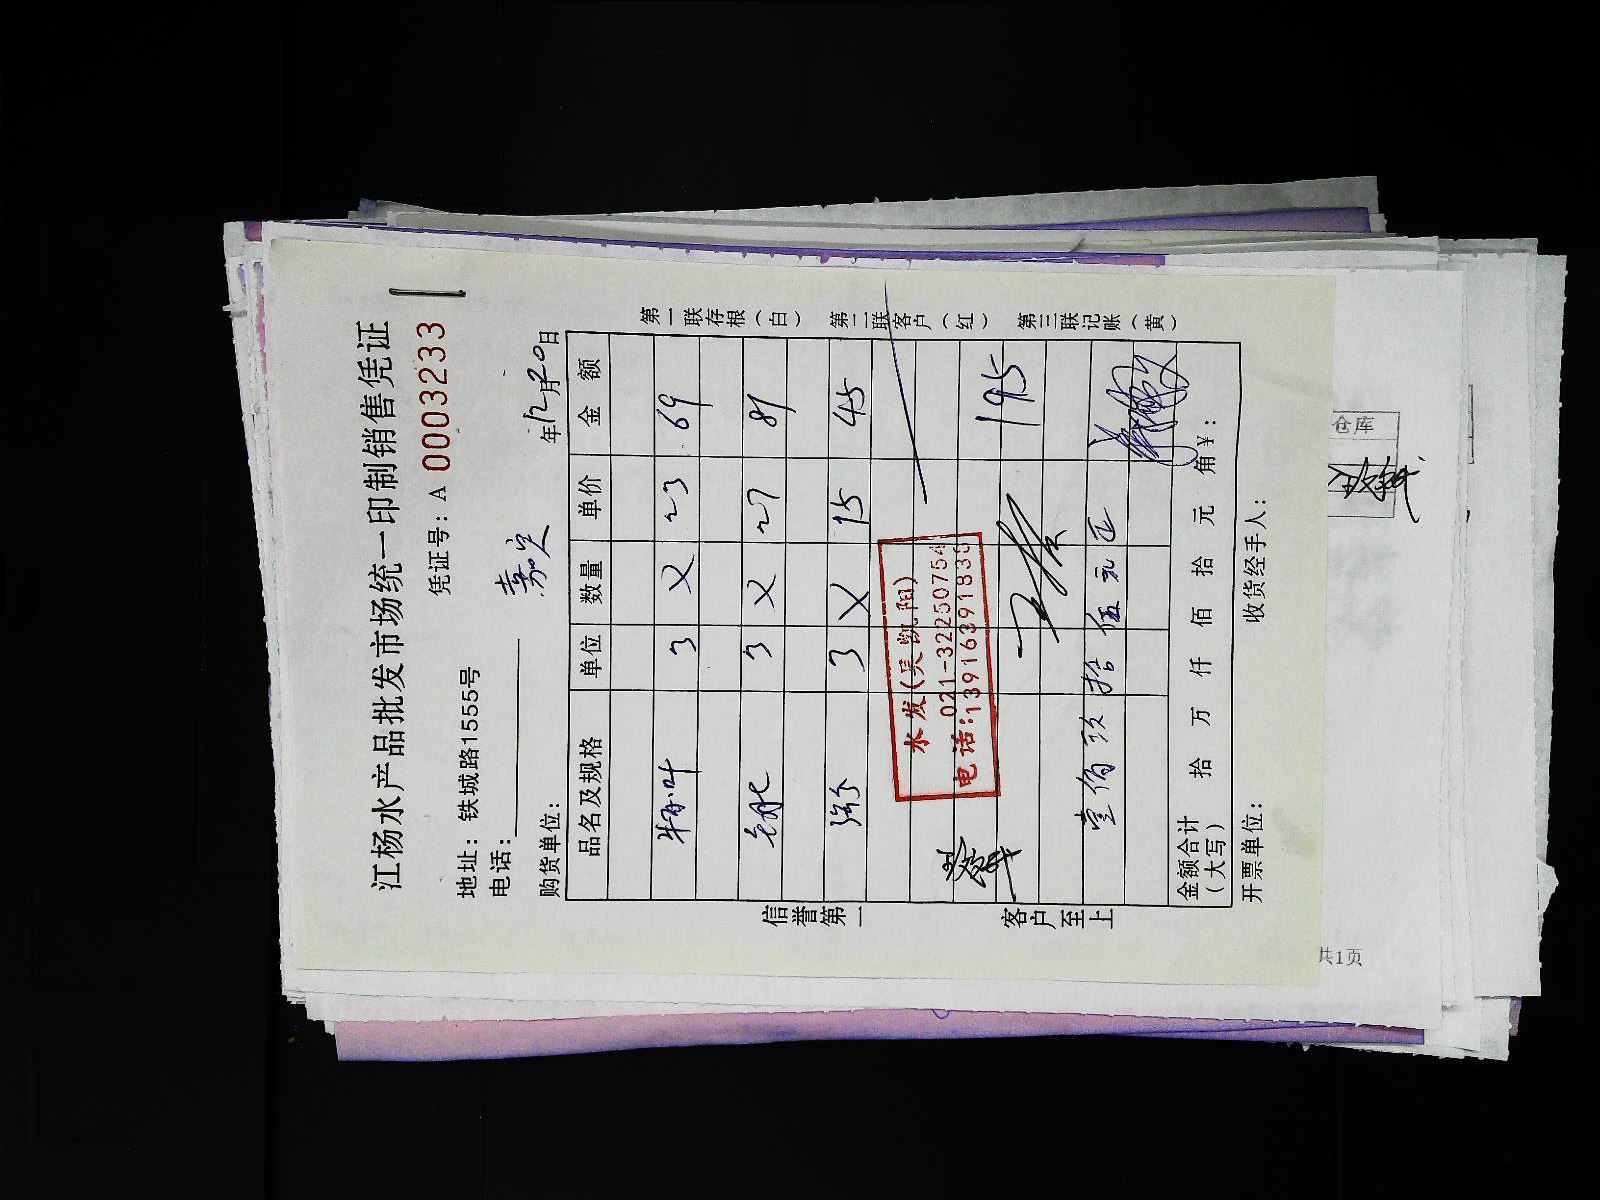 江杨水产品批发市场统一印制销售凭证
凭证号：A 0003233
地址：铁城路15555号
电话：
嘉定
购货单位： 年12月20日
品名及规格 单位 数量 单价 金额
牛百叶 3 X 23 69
3 X 27 81
3 X 15 45
水发(吴凯阳)
021-32250754
电话:1391639183
195
壹佰玖拾伍元正
金额合计（大写） 拾 万 仟 佰 拾 元 角¥：
开票单位： 收货经手人：
信誉第一
客户至上
第一联存根（白）
第二联客户（红）
第三联记账（黄）
仓库
共1页